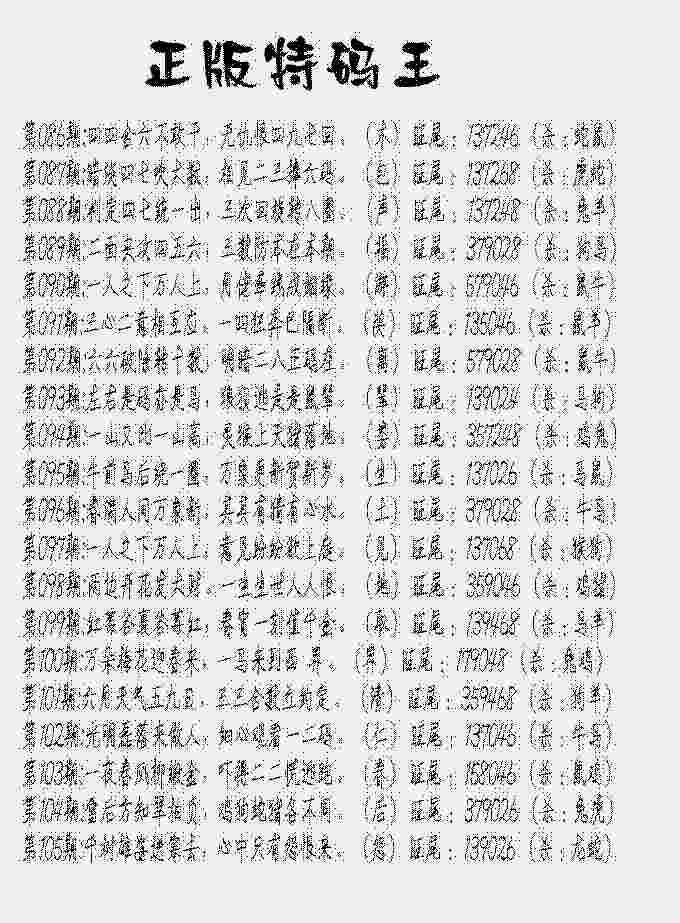 正版特码王
第086期:四四金六不敢干,无仇恨四九七回。 旺尾:137246(杀:蛇鼠)
第087期:错续四七吹大数,相见二三掉六码。(包)旺尾:137268(杀:虎蛇)
第088期:判定四七统一出,三次回拨转八圈。(声)旺尾:137248(杀:兔羊)
第089期:二面夹攻四五六,三数仿本在本期。 旺尾:379028(杀:狗马)
第090期:一人之下万人上,月使牵线成姻缘。 旺尾:579046(杀:鼠牛)
第091期:三心二意相互应,一四狂奔已隔断。 旺尾:135046(杀:鼠羊)
第092期:六六破除特千数,明暗二八五码在。 旺尾:579028(杀:鼠牛)
第093期:左右是码亦是马,狼狈逃走是鼠辈。(辈)旺尾:139024(杀:马狗)
第094期:一山又的一山高,灵猴上天猪落地。 旺尾:357248(杀:鸡兔)
第095期:牛前马后统一圈,万象更新贺新岁。(生)旺尾:137026(杀:马鼠)
第096期:春满人间万象新,真真有情有心水。(土)旺尾:379028(杀:牛马)
第097期:一人之下万人上,意见纷纷欲上庭。(见)旺尾:137068(杀:猴狗)
第098期:两边开花发大财。一生生世人人恨。(地)旺尾:359046(杀:鸡猪)
第099期:红幕谷里答幕红,春宵一刻值千金。(取)旺尾:139468(杀:马羊)
第100期:万朵梅花迎春来,一马来到西 界。(界)旺尾:179048(杀:兔鸡)
第101期:六月天气五九日,三三合数立约定。(清)旺尾:359468(杀:狗羊)
第102期:光明磊落来做人,细心观看一二码。(仁)旺尾:137046(杀:牛马)
第103期:一夜春风柳镀金,吓得二二慌逃跑。(春)旺尾:158046(杀:鼠鸡)
第104期:雪后方知翠柏贞,鸡狗蛇猪各不同。(后)旺尾:379026(杀:兔虎)
第105期:千树雄姿迎寒去,心中只有怨恨来。(怨)旺尾:139026(杀:龙蛇)